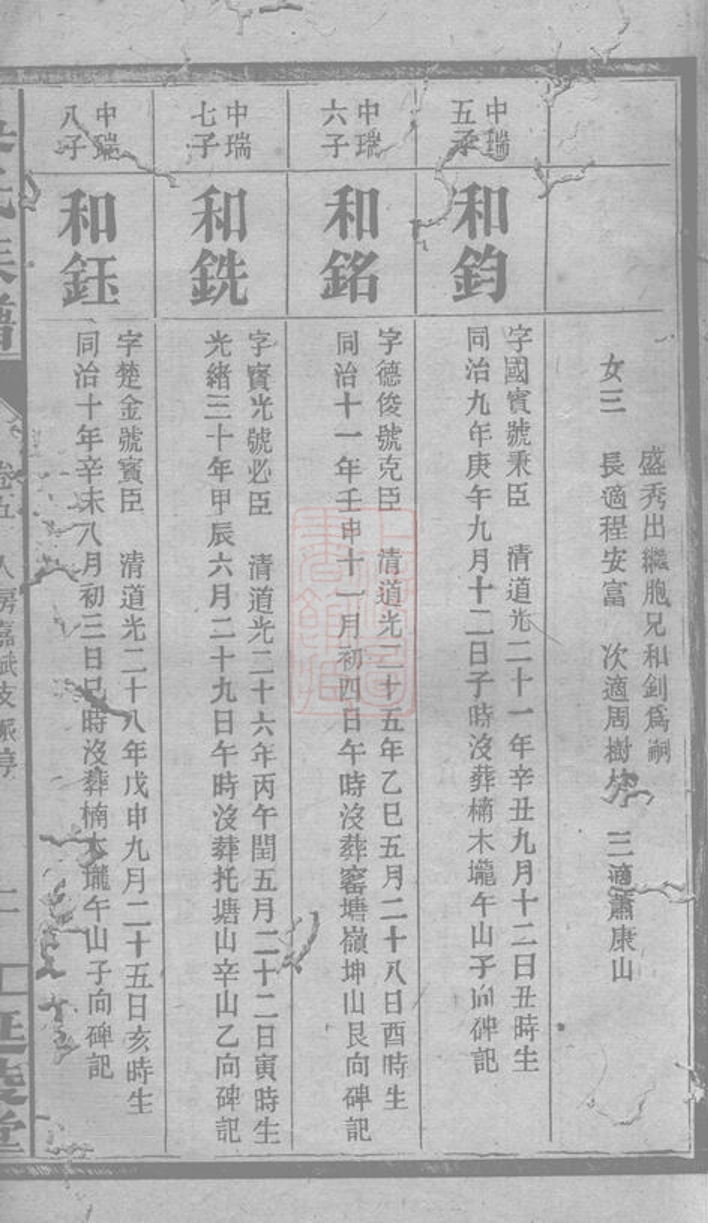 盛秀出繼胞兄和釗爲嗣
女三　長適程安富　次適周樹　三適蕭康山
中瑞
五子
和鈞
字國賓號秉臣　清道光二十一年辛丑九月十二日丑時生
同治九年庚午九月十二日子時沒葬楠木壠午山子向碑記
中瑞
六子
和銘
字德俊號克臣　清道光二十五年乙巳五月二十八日酉時生
同治十一年壬申十一月初四日午時沒葬窰塘嶺坤山艮向碑記
中瑞
七子
和銑
字賓光號必臣　清道光二十六年丙午閏五月二十二日寅時生
光緒三十年甲辰六月二十九日午時沒葬托塘山辛山乙向碑記
中瑞
八子
和鈺
字楚金號賓臣　清道光二十八年戊申九月二十五日亥時生
同治十年辛未八月初三日巳時沒葬楠木壠午山子向碑記
氏族譜　卷五　人房嘉斌支派亨　二　延陵堂